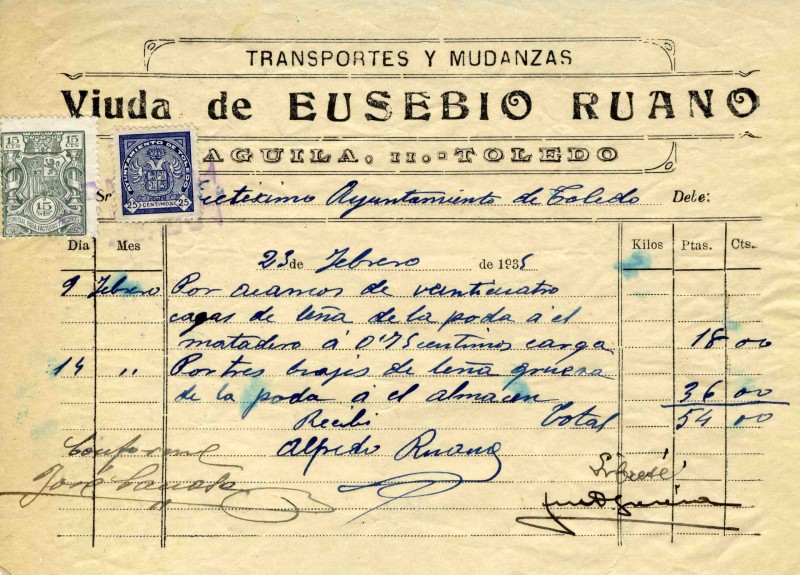 TRANSPORTES Y MUDANZAS
Viuda de EUSEBIO RUANO
AGUILA, 11.-TOLEDO
15 CTS 15 CTS
15 CTS
AYUNTAMIENTO DE TOLEDO
25 CENTIMOS 25
Sr Ayuntamiento de Toledo Debe:
Dia Mes Kilos Ptas. Cts.
23 de Febrero de 1935
9 Febrero Por acarreos de veinticuatro
cagas de leña de la poda á el
matadero á 0'75 centimos carga 18 00
14 " Por tres biajes de leña gruesa
de la poda á el almacen 36 00
Recibi Total 54 00
Conforme Alfredo Ruano
José